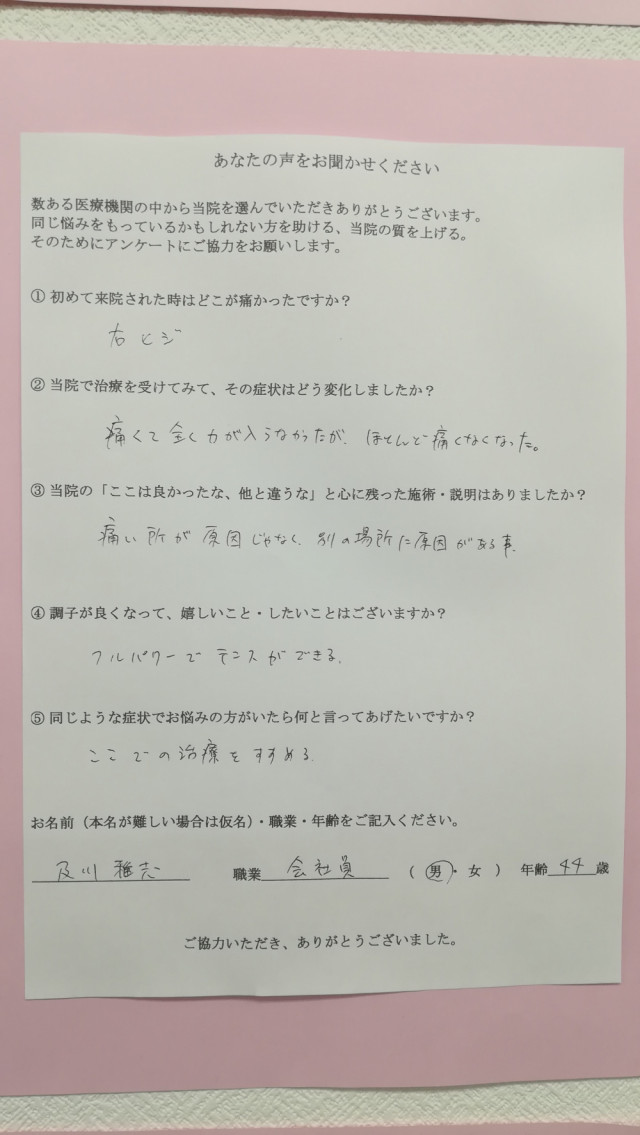 あなたの声をお聞かせください
数ある医療機関の中から当院を選んでいただきありがとうございます。
同じ悩みをもっているかもしれない方を助ける、当院の質を上げる。
そのためにアンケートにご協力をお願いします。
① 初めて来院された時はどこが痛かったですか？
右ヒジ
② 当院で治療を受けてみて、その症状はどう変化しましたか？
痛くて全く力が入らなかったが、ほとんど痛くなくなった。
③ 当院の「ここは良かったな、他と違うな」と心に残った施術・説明はありましたか？
痛い所が原因じゃなく、別の場所に原因がある事。
④ 調子が良くなって、嬉しいこと・したいことはございますか？
フルパワーでテニスができる。
⑤ 同じような症状でお悩みの方がいたら何と言ってあげたいですか？
ここでの治療をすすめる。
お名前（本名が難しい場合は仮名）・職業・年齢をご記入ください。
及川雅志 職業 会社員 （ 男・女 ） 年齢 44 歳
ご協力いただき、ありがとうございました。